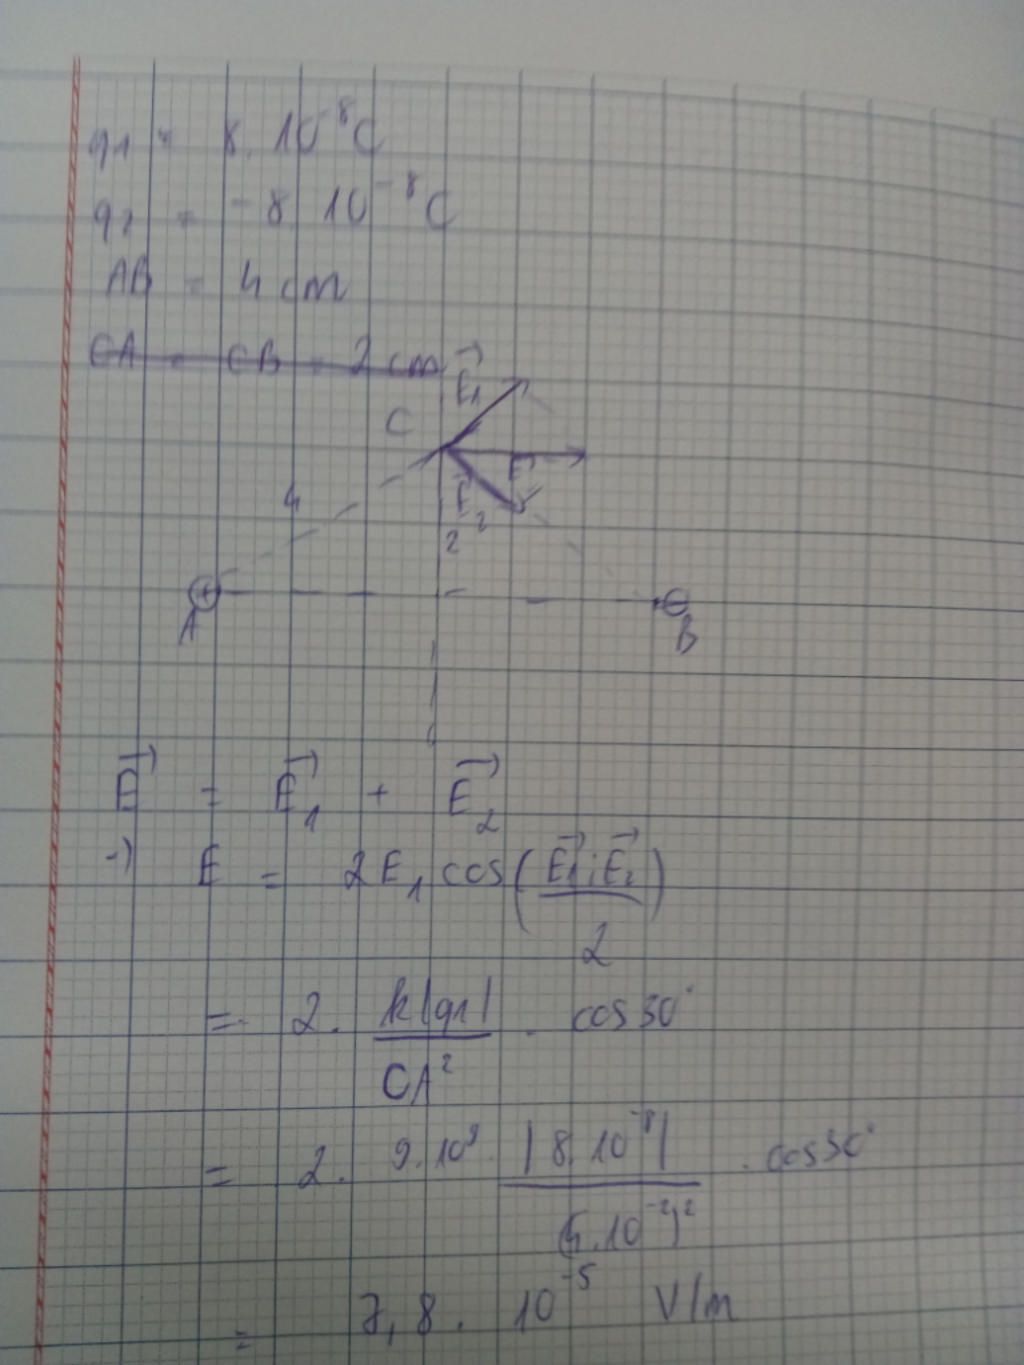 q1 = 8. 10⁻⁸C
q2 = -8 10⁻⁸C
AB = 4 cm
CA = CB = 2 cm
E⃗1
C
E⃗
4
E⃗2
2
A
B
E⃗ = E⃗1 + E⃗2
→) E = 2E1 cos(E⃗1;E⃗2 / 2)
= 2. k|q1| / CA² . cos30°
= 2. 9.10⁹. |8.10⁻⁸| / (4.10⁻²)² . cos30°
= 7,8. 10⁻⁵ V/m